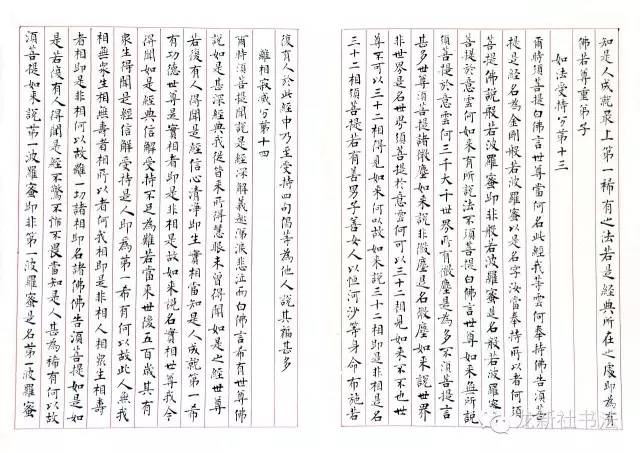 知是人成就最上第一稀有之法若是經典所在之處即為有
佛若尊重弟子
如法受持分第十三
爾時須菩提白佛言世尊當何名此經我等雲何奉持佛告須菩
提是經名為金剛般若波羅蜜以是名字汝當奉持所以者何須
菩提佛說般若波羅蜜即非般若波羅蜜是名般若波羅蜜
須菩提於意雲何如來有所說法不須菩提白佛言世尊如來無所說
須菩提於意雲何三千大千世界所有微塵是為多不須菩提言
甚多世尊須菩提諸微塵如來說非微塵是名微塵如來說世界
非世界是名世界須菩提於意雲何可以三十二相見如來不不也世
尊不可以三十二相得見如來何以故如來說三十二相即是非相是名
三十二相須菩提若有善男子善女人以恒河沙等身命布施若
復有人於此經中乃至受持四句偈等為他人說其福甚多
離相寂滅分第十四
爾時須菩提聞說是經深解義趣涕淚悲泣而白佛言希有世尊佛
說如是甚深經典我從昔來所得慧眼未曾得聞如是之經世尊
若復有人得聞是經信心清淨即生實相當知是人成就第一希
有功德世尊是實相者即是非相是故如來說名實相世尊我今
得聞如是經典信解受持不足為難若當來世後五百歲其有
眾生得聞是經信解受持是人即為第一希有何以故此人無我
相無眾生相無壽者相所以者何我相即是非相人相眾生相壽
者相即是非相何以故離一切諸相即名諸佛佛告須菩提如是如
是若復有人得聞是經不驚不怖不畏當知是人甚為稀有何以故
須菩提如來說第一波羅蜜即非第一波羅蜜是名第一波羅蜜
龙新社书法